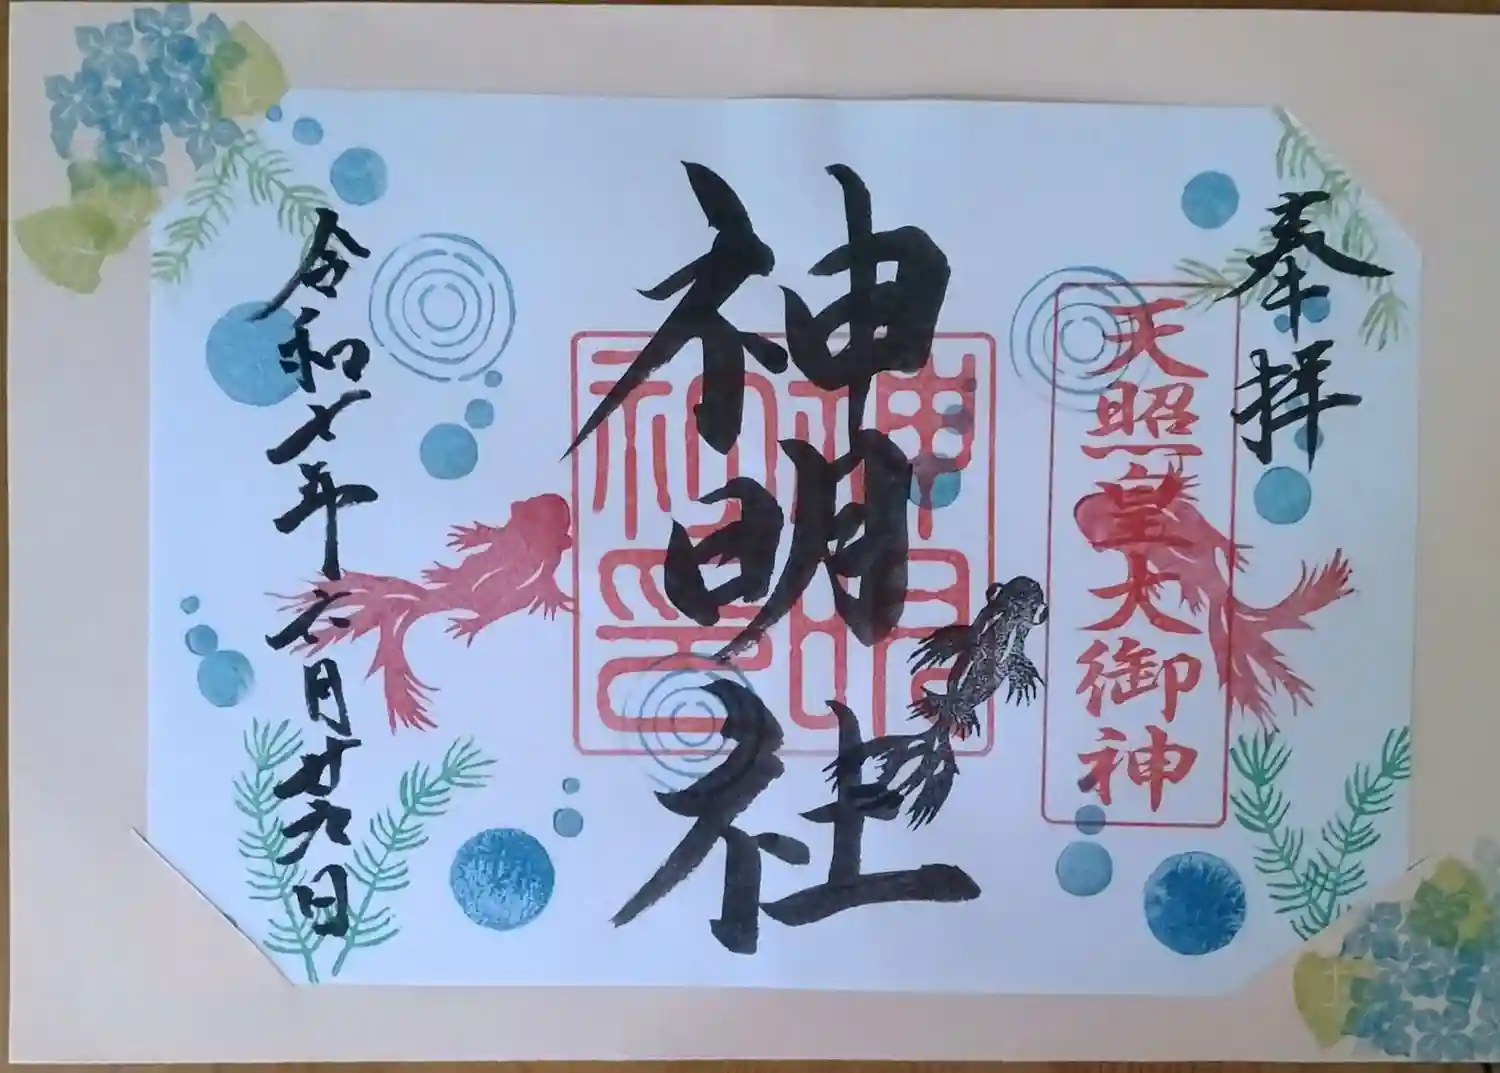 奉拝
天照皇大御神
神明社
神明
社印
令和七年六月廿九日